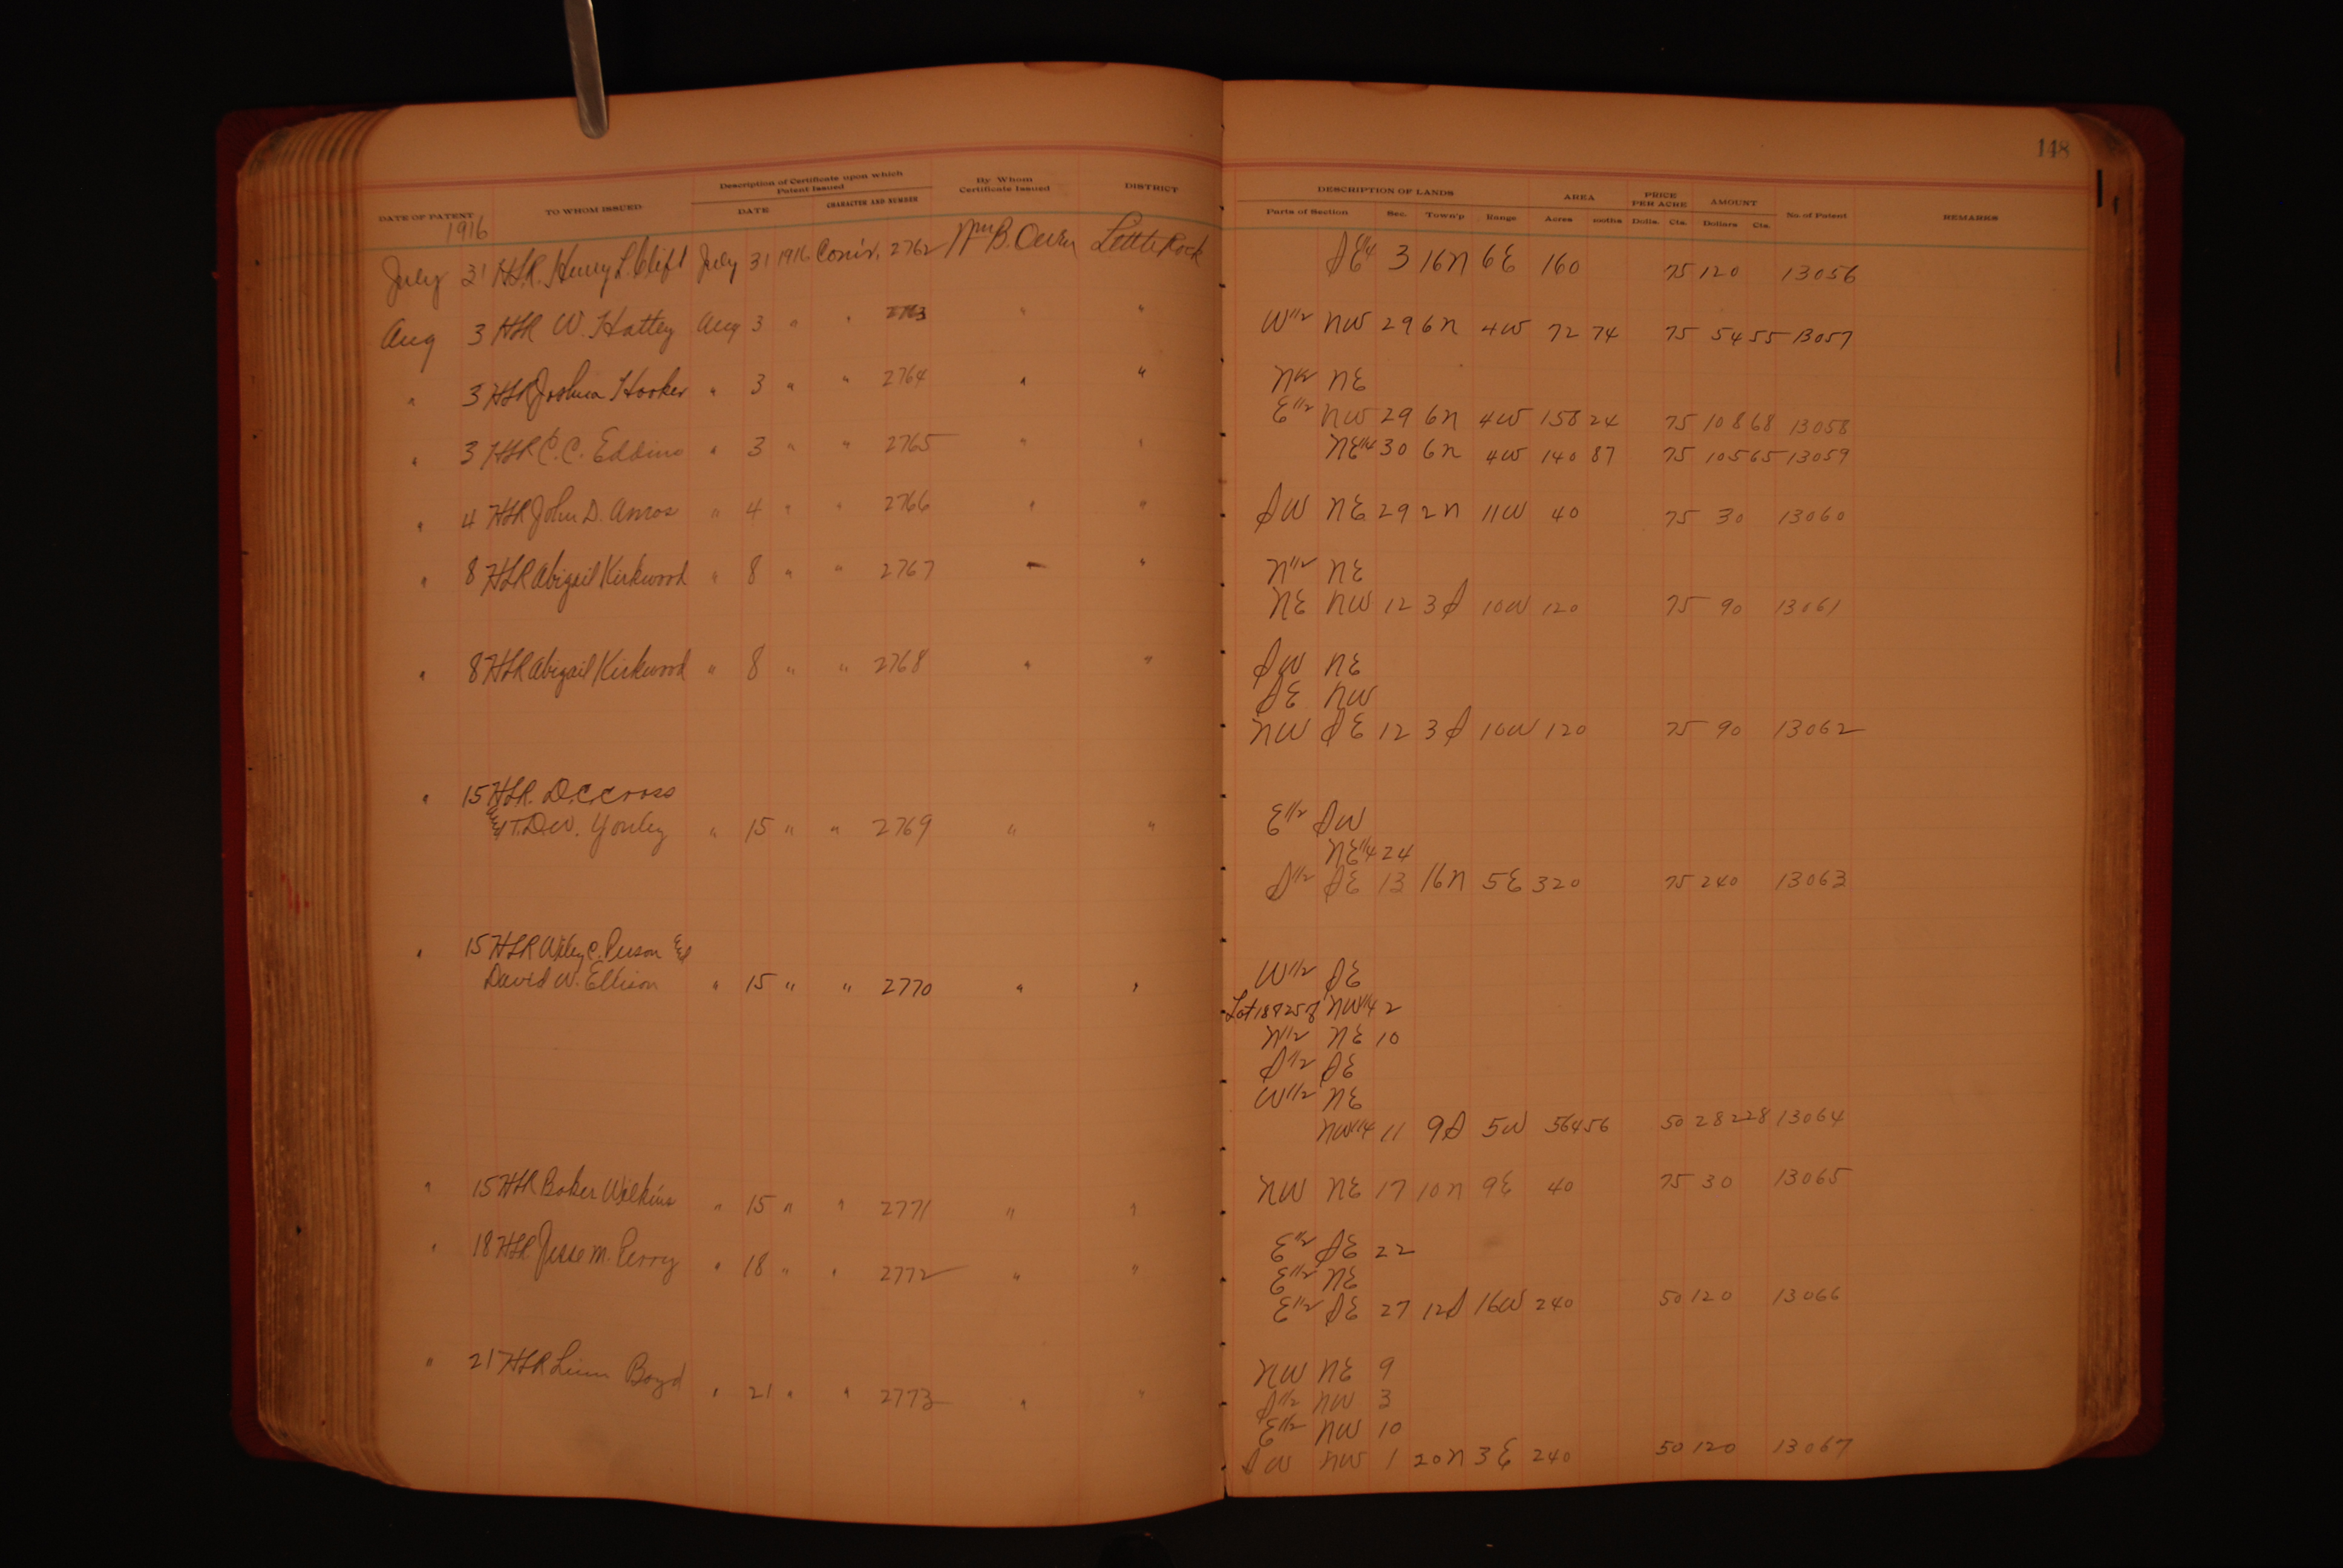 148
DATE OF PATENT TO WHOM ISSUED Description of Certificate upon which Patent Issued DATE CHARACTER AND NUMBER By Whom Certificate Issued DISTRICT DESCRIPTION OF LANDS Parts of Section Sec. Town'p Range AREA Acres PRICE PER ACRE Dolls. Cts. AMOUNT Dollars Cts. No. of Patent REMARKS
1916
July 31 Henry L. Clift July 31 1916 2762 Wm B. Owen Little Rock SE1/4 3 16N 6E 160 75 120 13056
Aug 3 W. Hattey Aug 3 " " " " W1/2 NW 29 6N 4W 72 74 75 54 55 13057
" 3 Joshua Hooker " 3 " " 2764 " " N1/2 NE
E1/2 NW 29 6N 4W 158 24 75 108 68 13058
" 3 C.C. Eddins " 3 " " 2765 " " NE1/4 30 6N 4W 140 87 75 105 65 13059
" 4 John D. Amos " 4 " " 2766 " " SW NE 29 2N 11W 40 75 30 13060
" 8 Abigail Kirkwood " 8 " " 2767 " " N1/2 NE
NE NW 12 3S 10W 120 75 90 13061
" 8 Abigail Kirkwood " 8 " " 2768 " " SW NE
SE NW
NW SE 12 3S 10W 120 75 90 13062
" 15 D.C. Cross
and T.D.W. Yonley " 15 " " 2769 " " E1/2 SW
NE1/4 24
S1/2 SE 13 16N 5E 320 75 240 13063
" 15 Wiley C. Pierson
David W. Ellison " 15 " " 2770 " " W1/2 SE
NW1/4 2
N1/2 NE 10
S1/2 SE
W1/2 NE
NW1/4 11 9S 5W 564 56 50 282 28 13064
" 15 Baker Wilkins " 15 " " 2771 " " NW NE 17 10N 9E 40 75 30 13065
" 18 Jesse M. Perry " 18 " " 2772 " " E1/2 SE 22
E1/2 NE
E1/2 SE 27 12S 16W 240 50 120 13066
" 21 Boyd " 21 " " 2773 " " NW NE 9
S1/2 NW 3
E1/2 NW 10
SW NW 1 20N 3E 240 50 120 13067